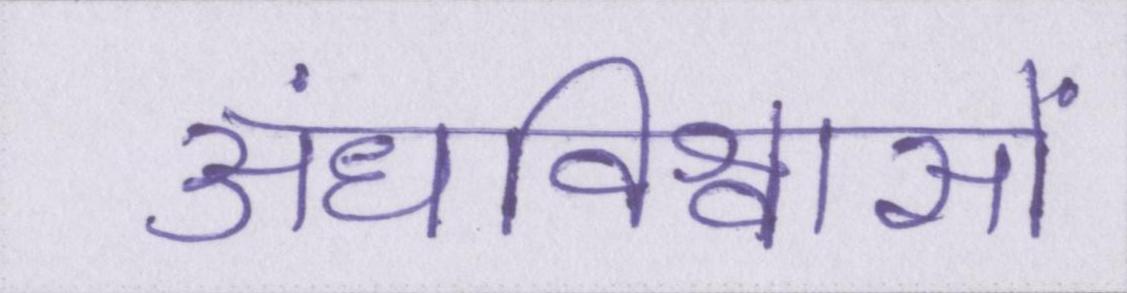 अंधविश्वासों